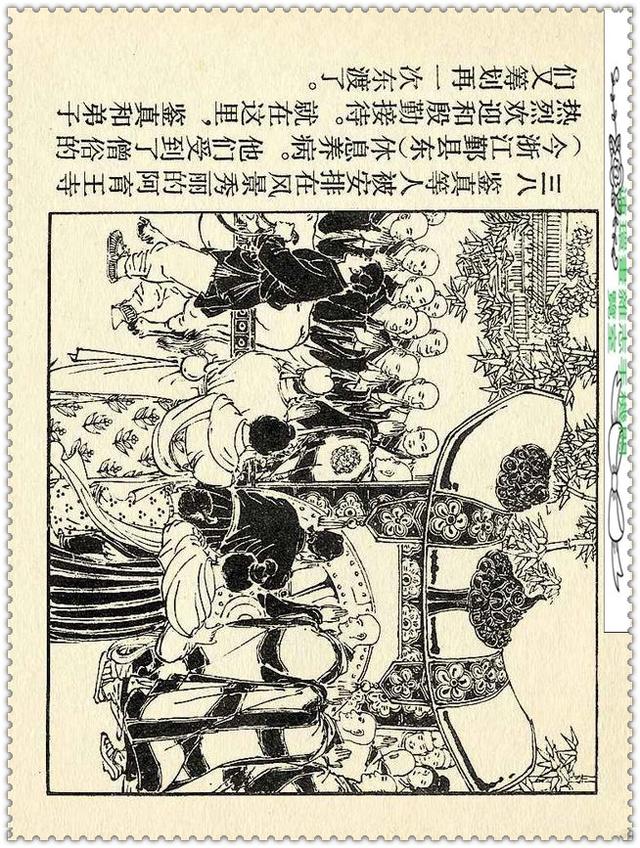 三八 鉴真等人被安排在风景秀丽的阿育王寺
（今浙江鄞县东）休息养病。他们受到了僧俗的
热烈欢迎和殷勤接待。就在这里，鉴真和弟子
们又筹划再一次东渡了。